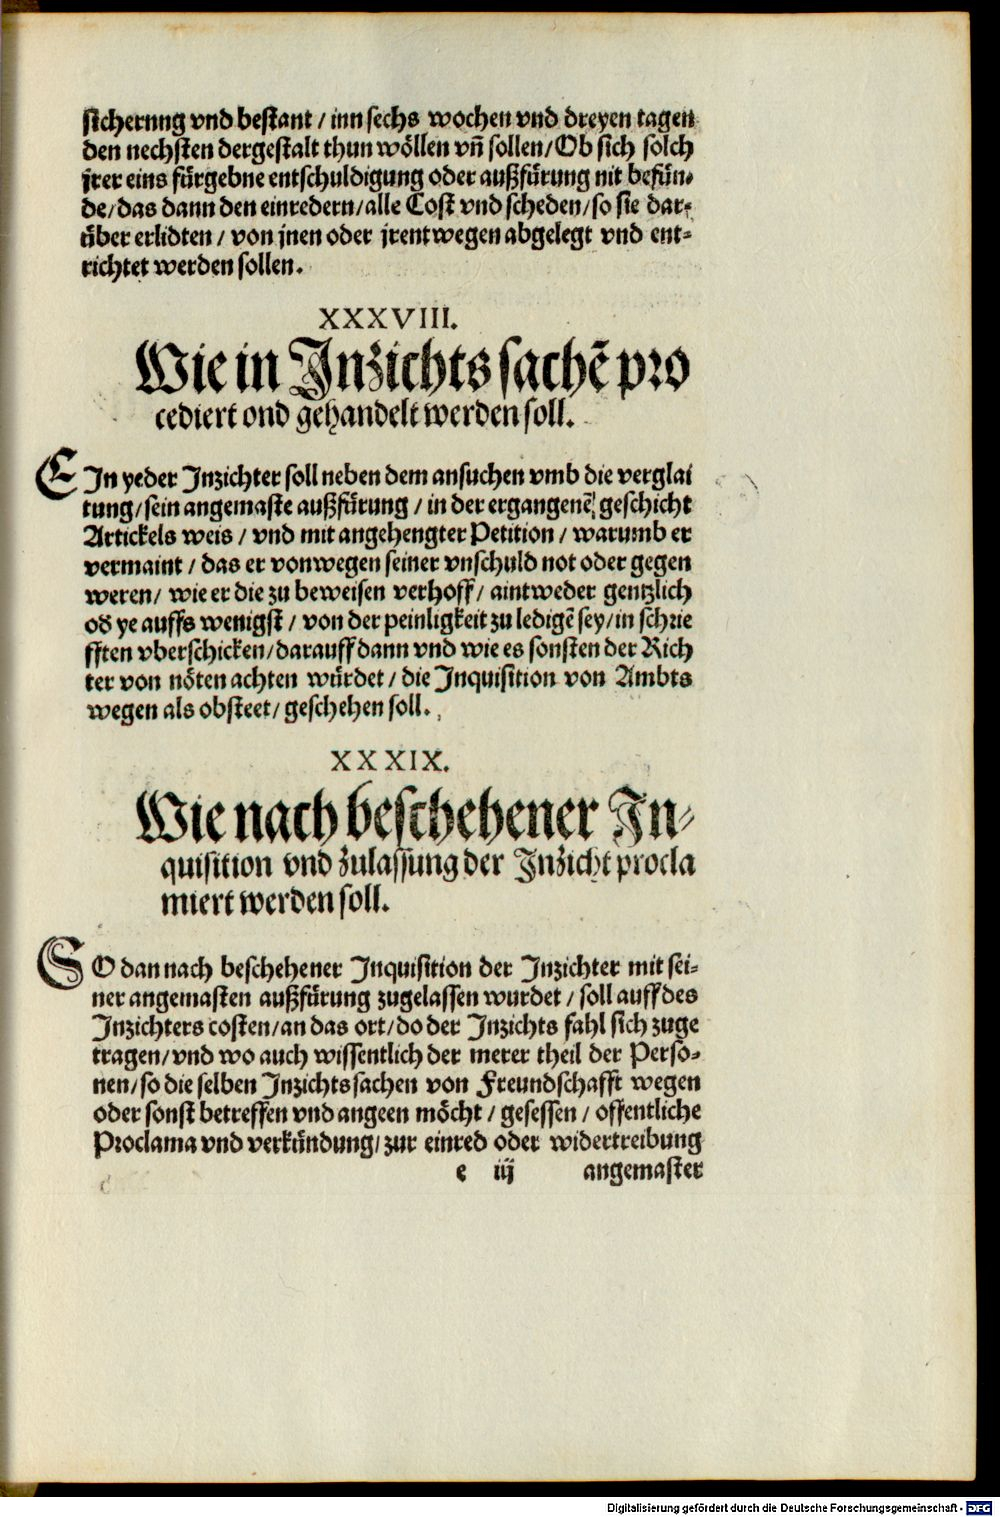 sicherung vnd bestant / inn sechs wochen vnd dreyen tagen
den nechsten dergestalt thun wöllen vñ sollen / Ob sich solch
jrer eins fürgebne entschuldigung oder außfürung nit befün-
de / das dann den einredern / alle Cost vnd scheden / so sie dar-
über erlidten / von jnen oder jrentwegen abgelegt vnd ent-
richtet werden sollen.
XXXVIII.
Wie in Inzichts sachē pro
cediert vnd gehandelt werden soll.
EIn yeder Inzichter soll neben dem ansuchen vmb die verglai
tung / sein angemaste außfürung / in der ergangenē geschicht
Artickels weis / vnd mit angehengter Petition / warumb er
vermaint / das er von wegen seiner vnschuld not oder gegen
weren / wie er die zu beweisen verhoff / aintweder gentzlich
od ye auffs wenigst / von der peinligkeit zu ledigē sey / in schrie
fften vberschicken / darauff dann vnd wie es sonsten der Rich
ter von nöten achten würdet / die Inquisition von Ambts
wegen als obsteet / geschehen soll.
XXXIX.
Wie nach beschehener In-
quisition vnd zulassung der Inzicht procla
miert werden soll.
SO dan nach beschehener Inquisition der Inzichter mit sei-
ner angemasten außfürung zugelassen wurdet / soll auff des
Inzichters costen / an das ort / do der Inzichts fahl sich zuge
tragen / vnd wo auch wissentlich der merer theil der Perso-
nen / so die selben Inzichts sachen von Freundschafft wegen
oder sonst betreffen vnd angeen möcht / gesessen / offentliche
Proclama vnd verkündung / zur einred oder widertreibung
e iij angemaster
Digitalisierung gefördert durch die Deutsche Forschungsgemeinschaft - DFG